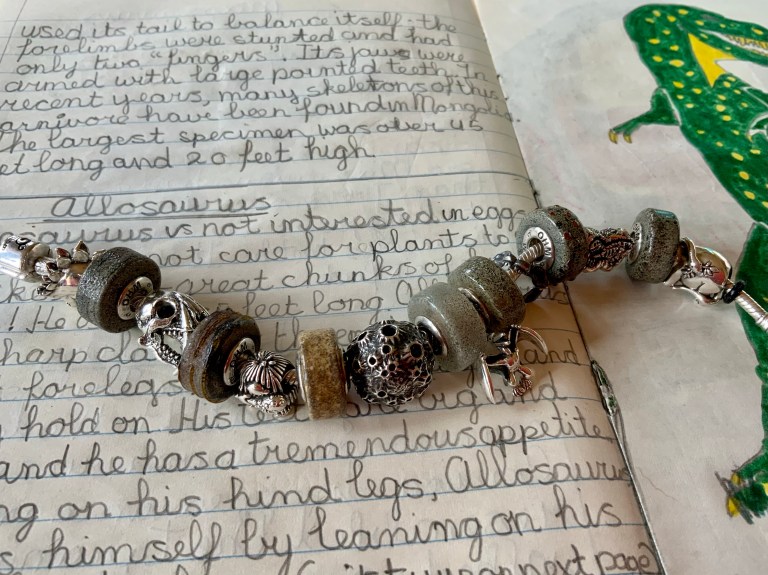 used its tail to balance itself. the
forelimbs were stunted and had
only two "fingers". Its jaws were
armed with large pointed teeth. In
recent years, many skeletons of this
arnivore have been found in Mongolia.
he largest specimen was over 45
et long and 20 feet high
allosaurus
osaurus is not interested in egg
not care for plants to
great chunks of
feet long Al
! He
harp cla them and
forelegs
hold on His teeth are big and
and he has a tremendous appetite
ng on his hind legs, Allosaurus
s himself by leaning on his
next page